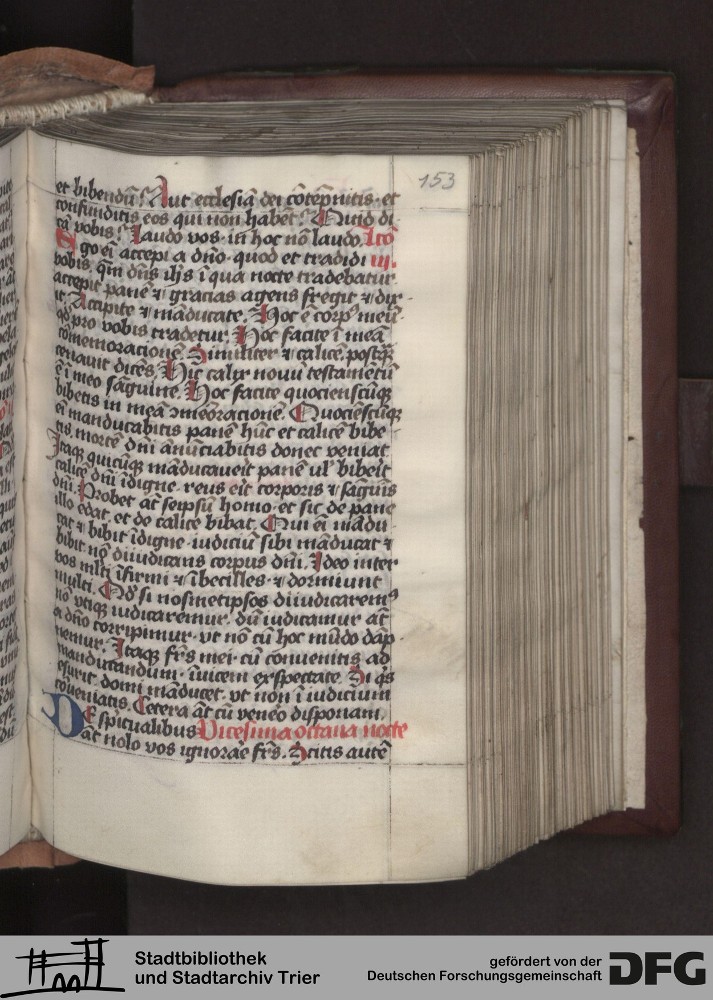 153
et bibendū? Aut ecclesiā dei cōtēpnitis et
confunditis eos qui non habēt? Quid di
cā vobis? Laudo vos in hoc nō laudo. Lcō
Ego ei accepi a dño quod et tradidi iii.
vobis, qm̄ dñs ihs ī qua nocte tradebatur
accepit panē ⁊ gracias agens fregit ⁊ dix
it. Accipite ⁊ māducate. Hoc ē corpꝰ meū
qd pro vobis tradetur. Hoc facite ī meā
cōmemoracionē. Similiter ⁊ calicē, postqͣ
cenauit dicēs. Hic calyx novū testamētū
ē ī meo sāguine. Hoc facite quociēscūqꝫ
bibetis in meā ↄmēoracionē. Quociēscūqꝫ
ei manducabitis panē hūc et calicē bibe
tis, mortē dñi anūciabitis donec veniat
Itaqꝫ quicūqꝫ māducaueit panē ul' bibeit
calicē dñi īdigne, reus eit corporis ⁊ sāguīs
dñi. Probet āt seipsū homo et sic de pane
illo edat, et de calice bibat. Qui ei mādu
cat ⁊ bibit īdigne iudiciū sibi māducat ⁊
bibit nō diiudicans corpus dñi. Ideo inter
vos mlti īfirmi ⁊ ībecilles ⁊ dormiunt
multi. Qd si nosmetipsos diiudicaremꝰ
nō vtiqꝫ iudicaremur, dū iudicamur āt
a dño corripimur vt nō cū hoc mūdo dāp
nemur. Itaqꝫ frs mei cū conuenitis ad
manducandum, īuicem exspectate. Si qs
esurit, domi māducet, vt non ī iudicium
cōueniatis. Cetera āt cū venēo disponam.
De spiritualibus Vicesima octaua nocte
āt nolo vos ignorare frs. Scitis autē
Stadtbibliothek
und Stadtarchiv Trier
gefördert von der
Deutschen Forschungsgemeinschaft DFG